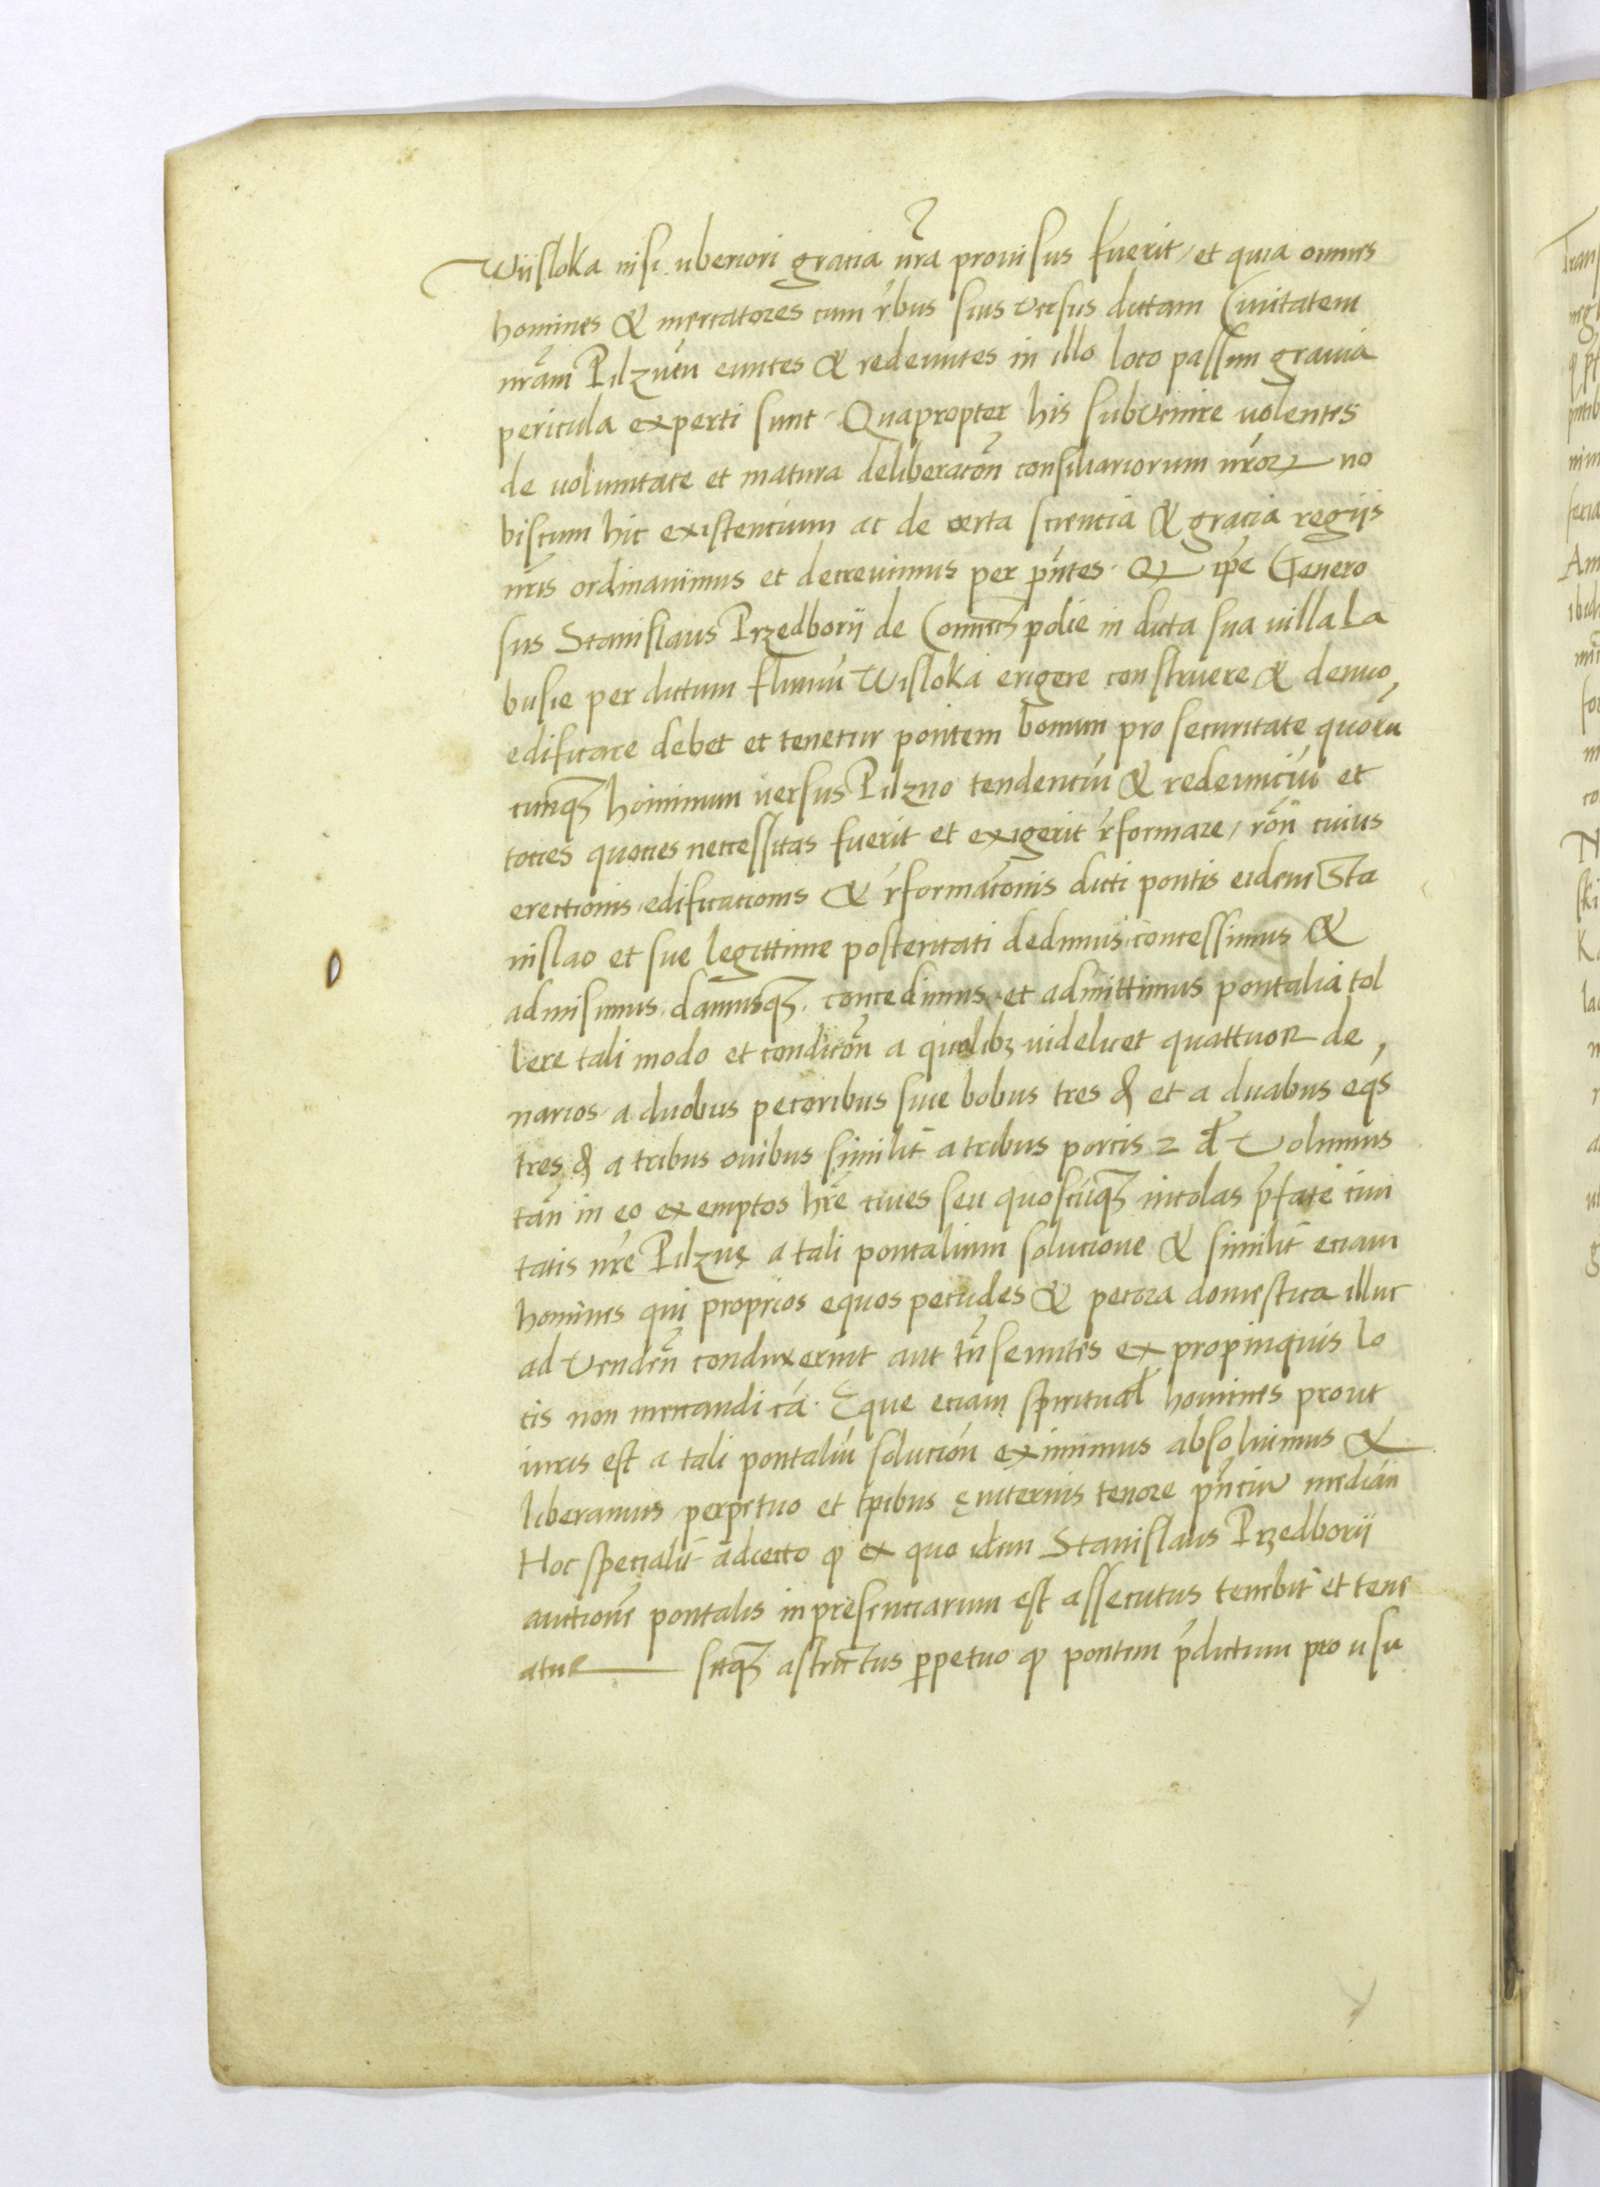 Wiisloka nisi uberiori gracia nr̃a prouisus fuerit, et quia omnes
homines & mercatores cum r̃bus suis versus dictam Ciuitatem
nr̃am Pilznen̄ euntes & redeuntes in illo loco passim grauia
pericula experti sunt. Quapropter his subvenire uolentes
de uoluntate et matura deliberacõn consiliariorum nr̃oꝝ no
biscum hic existencium ac de certa sciencia & gracia regijs
nr̃is ordinauimus et decreuimus per pñtes. Qꝫ ip̃e Genero
sus Stanislaus Przedborij de Comecꝫpolie in dicta sua uilla La
busie per dictum fluuiũ Wisloka erigere construere & denuo,
edificare debet et tenetur pontem bonum pro securitate quorũ
cunqꝫ hominum uersus Pilzno tendenciũ & redeunciũ et
tocies quocies necessitas fuerit et exigerit r̃formare, rõn cuius
erectionis edificacionis & r̃formacõnis dicti pontis eidem Sta
nislao et sue legittime posteritati dedimus concessimus &
admisimus, damusqꝫ. concedimus et admittimus pontalia tol
lere tali modo et condicõn a quolibꝫ uidelicet quattuor de,
narios. a duobus pecoribus siue bobus tres ₰ et a duabus eq̃s
tres ₰ a tribus ouibus similit̃ a tribus porcis 2 ₰ Volumus
tam̃ in eo exemptos hr̃e ciues seu quoscũqꝫ incolas p̃fate ciui
tatis nr̃e Pilznę a tali pontalium solucione & similit̃ eciam
homines qui proprios equos pecudes & pecora domestica illuc
ad vendeñ conduxerint aut tr̃nseuntes ex propinquis lo
cis non mercandi cã. Eque eciam sp̃iritual̃ homines prout
iuris est a tali pontaliũ solucioñ eximimus absoluimus &
liberamus perpetuo et tp̃ibus ęuiternis tenore pñciũ median̄
Hoc specialit̃ adiecto ꝙ ex quo idem Stanislaus Przedborij
auctionẽ pontalis inpresenciarum est assecutus tenebit̃ et tene
atur sitqꝫ astrictus ꝑpetuo ꝙ pontem p̃dictum pro usu